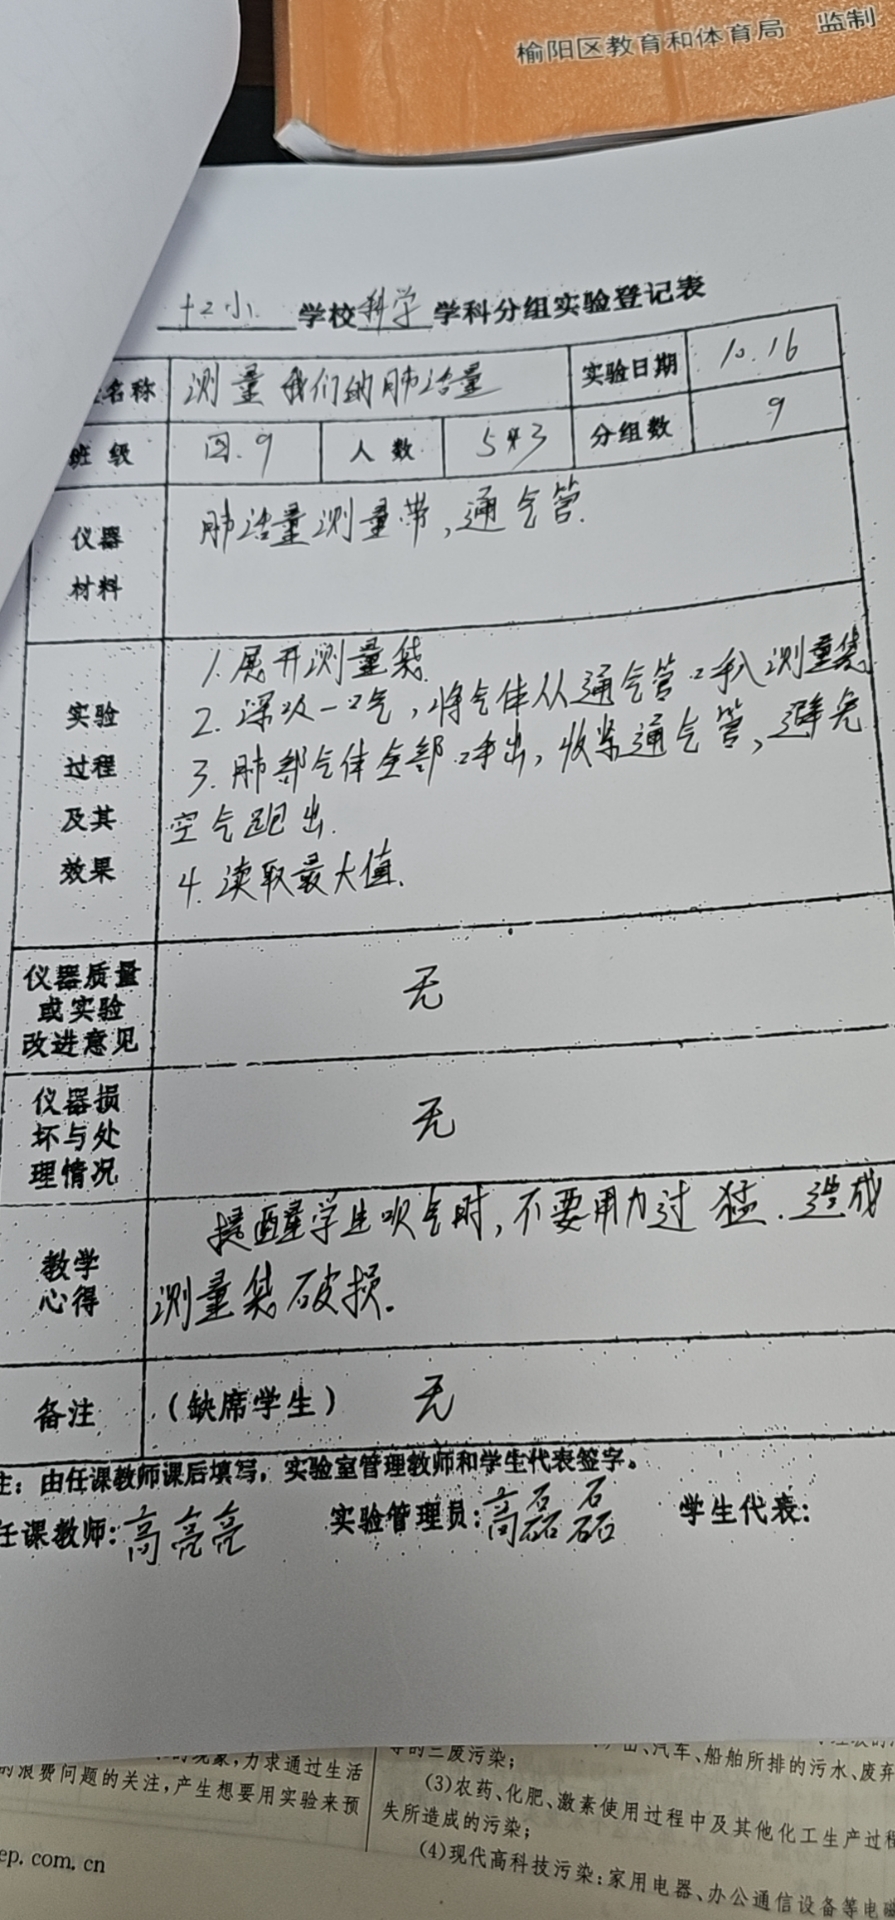 榆阳区教育和体育局 监制
十二小 学校 科学 学科分组实验登记表
名称 测量我们的肺活量 实验日期 10.16
班级 四.9 人数 53 分组数 9
仪器材料 肺活量测量带,通气管.
实验过程及其效果
1.展开测量袋.
2.深吸一口气,将气体从通气管呼入测量袋
3.肺部气体全部呼出,收紧通气管,避免
空气跑出.
4.读取最大值.
仪器质量或实验改进意见 无
仪器损坏与处理情况 无
教学心得 提醒学生吹气时,不要用力过猛.造成
测量袋破损.
备注 (缺席学生) 无
注:由任课教师课后填写,实验室管理教师和学生代表签字。
任课教师:高亮亮 实验管理员:高磊磊 学生代表:
的现象,力求通过生活
的浪费问题的关注,产生想要用实验来预
ep.com.cn
等的三废污染;
、汽车、船舶所排的污水、废弃
(3)农药、化肥、激素使用过程中及其他化工生产过程
失所造成的污染;
(4)现代高科技污染:家用电器、办公通信设备等电磁